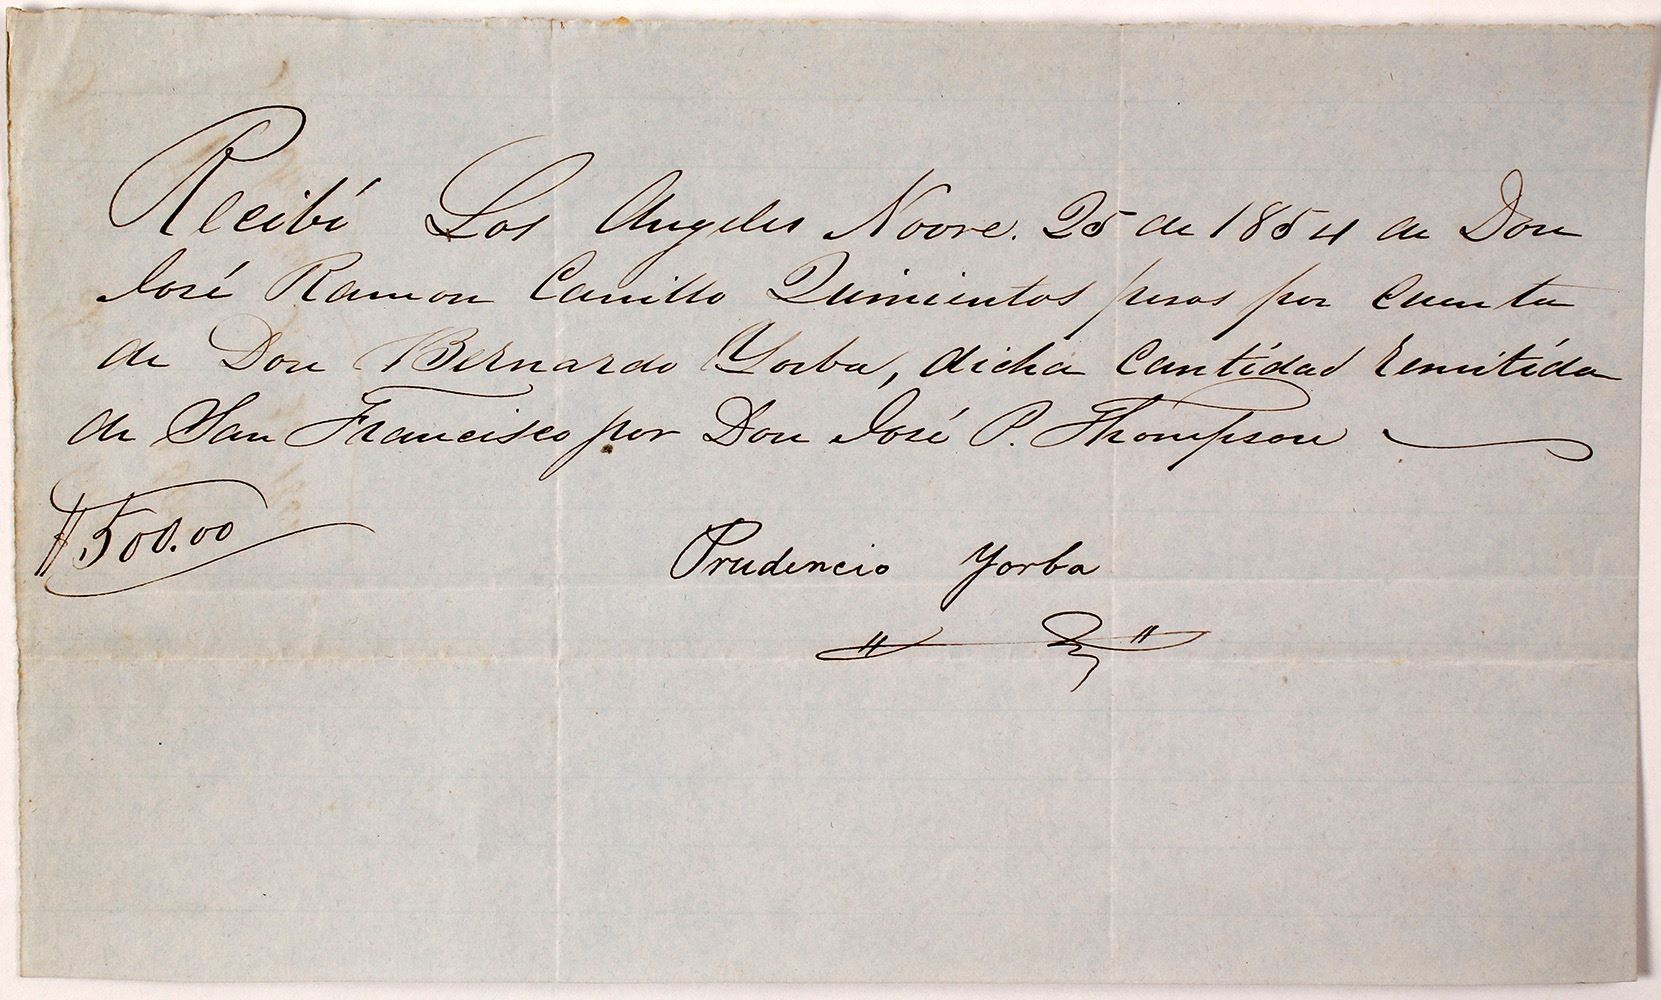 Recibí Los Angeles Novre. 25 de 1854 de Don
José Ramon Carrillo Quinientos pesos por Cuenta
de Don Bernardo Yorba, dicha Cantidad remitida
de San Francisco por Don José P. Thompson
$500.00
Prudencio Yorba